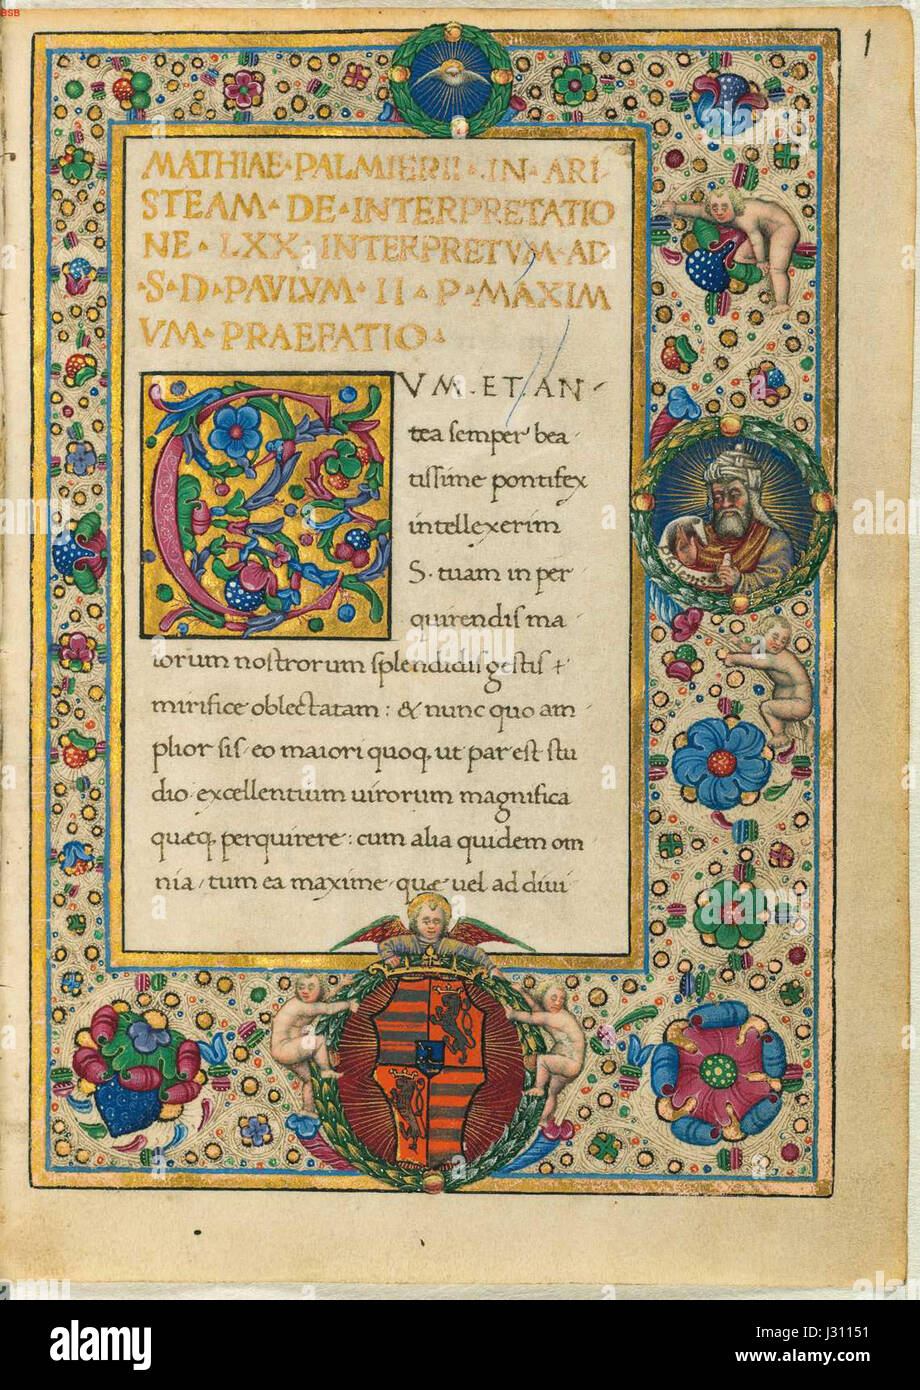 BSB
1
MATHIAE · PALMIERII · IN · ARI
STEAM · DE · INTERPRETATIO
NE · LXX · INTERPRETVM · AD
· S · D · PAVLVM · II · P · MAXIM
VM · PRAEFATIO ·
CVM . ET . AN
tea semper bea
tissime pontifex
intellexerim
S. tuam in per
quirendis ma
iorum nostrorum splendidis gestis +
mirifice oblectatam : & nunc quo am
plior sis eo maiori quoq, ut par est stu
dio excellentium uirorum magnifica
quæq, perquirere : cum alia quidem om
nia / tum ea maxime quæ uel ad diui
alamy
Image ID: J31151
www.alamy.com